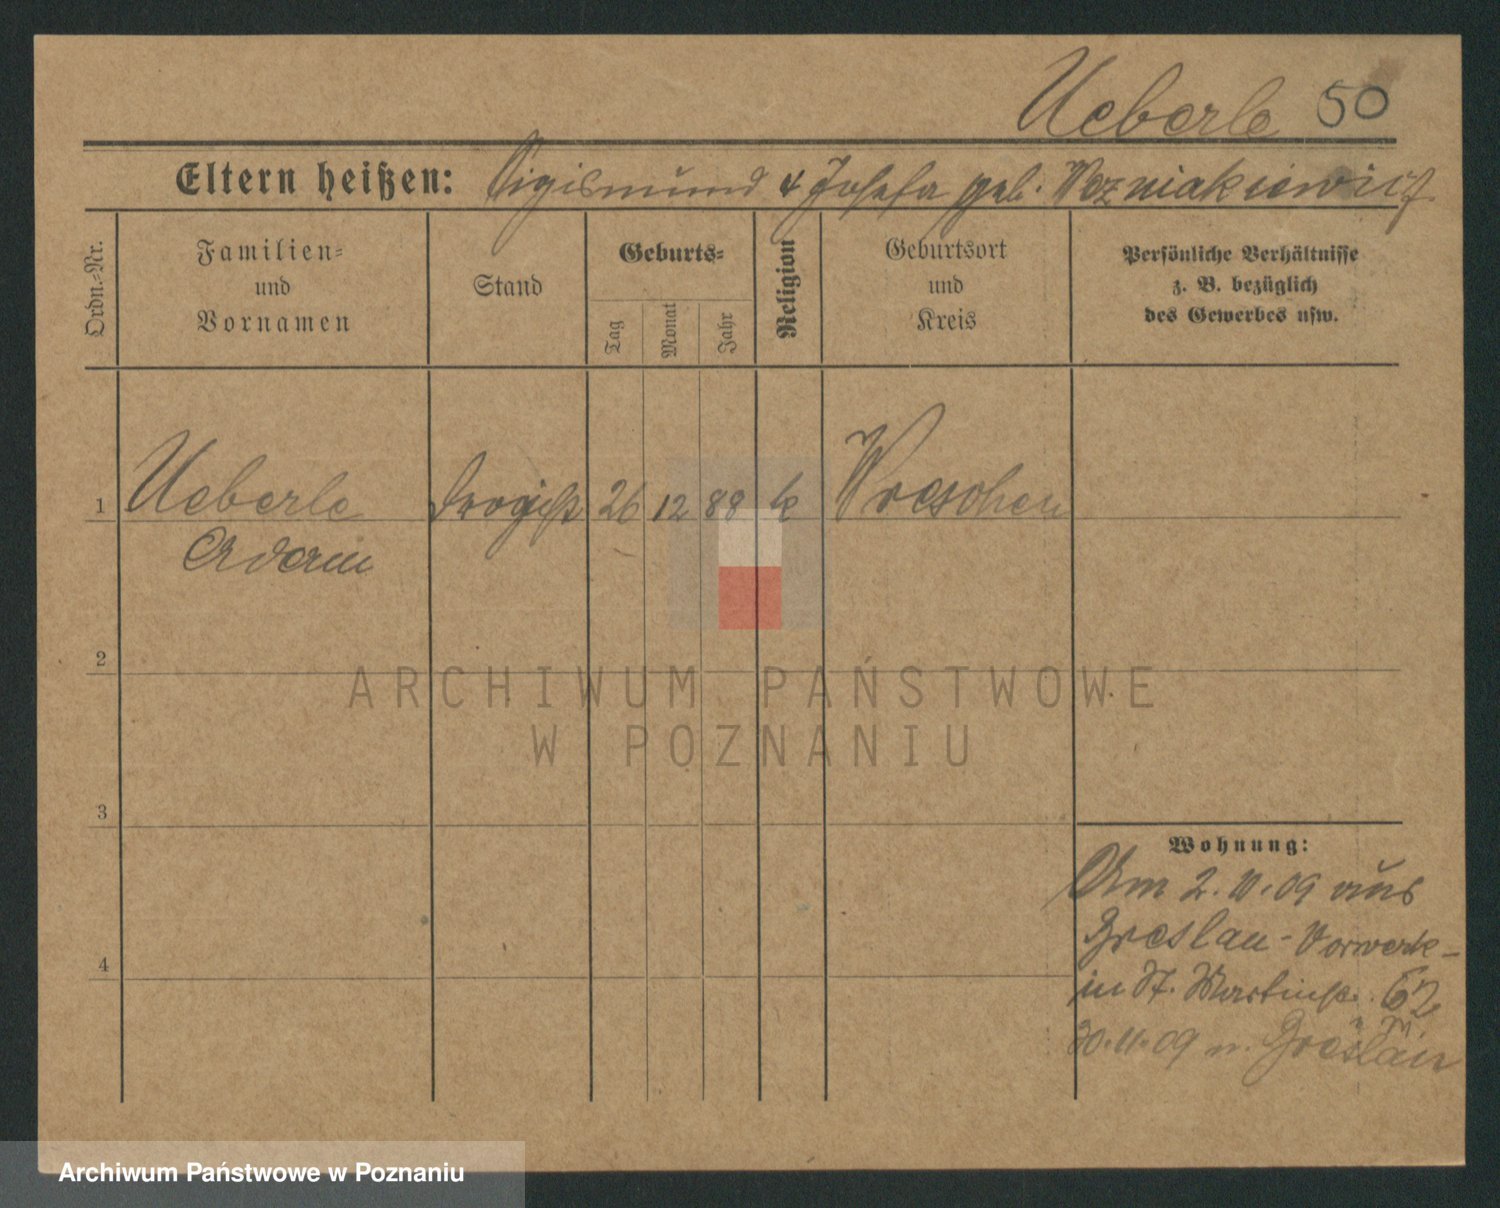 Ueberle 50
Eltern heißen: Sigismund & Josefa geb. Wozniakiewicz.
Ordn.-Nr.
Familien-
und
Vornamen
Stand
Geburts-
Tag
Monat
Jahr
Religion
Geburtsort
und
Kreis
Persönliche Verhältnisse
z. B. bezüglich
des Gewerbes usw.
1 Ueberle Drogist 26 12 88 k Wreschen
Adam
2
ARCHIWUM PAŃSTWOWE
W POZNANIU
3
Wohnung:
Am 2. 10. 09 aus
Breslau - Vorwerk-
4
in St. Martinstr. 62
30.11.09 n. Breslau
Archiwum Państwowe w Poznaniu